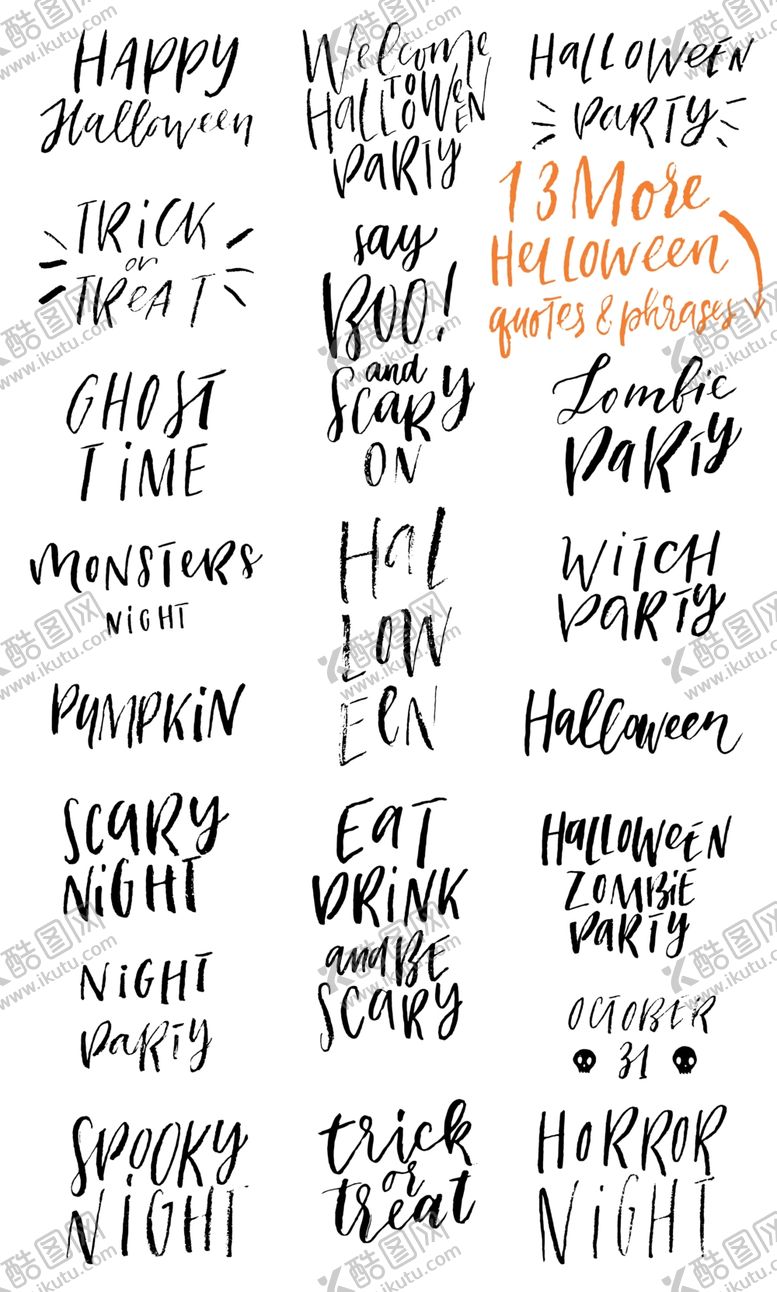 HAPPY
Halloween
TRiCK
or
TReAT
GHOST
TiME
MONSTERS
NIGHT
PUMPKiN
SCARY
NiGHT
NiGHT
PaRTY
SPOOKY
NiGHT
Welcome
TO
HALLOWEEN
PaRTY
say
BOO!
and
Scary
ON
Hal
LOW
EeN
EaT
DRiNK
and BE
SCaRY
trick
or
treat
HaLLOWEEN
PaRTY
13 More
Helloween
quotes & phrases
Zombie
PaRTY
WiTCH
PaRTY
Halloween
HaLLOWEEN
ZOMBiE
PaRTY
OCTOBER
31
HORROR
NiGHT
酷图网
www.ikutu.com